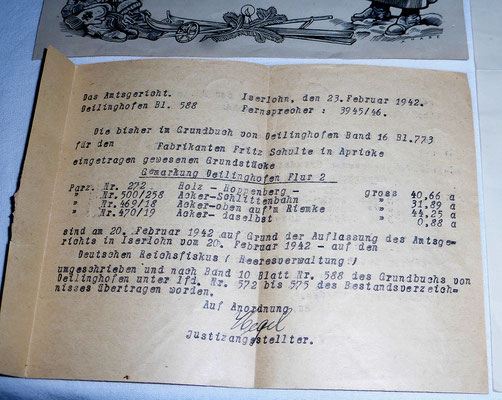 Das Amtsgericht. Iserlohn, den 23.Februar 1942.
Deilinghofen Bl. 588 Fernsprecher : 3945/46.
Die bisher im Grundbuch von Deilinghofen Band 16 Bl.773
für den Fabrikanten Fritz Schulte in Apricke
eingetragen gewesenen Grundstücke
Gemarkung Deilinghofen Flur 2
Parz. Nr. 272 Holz - Hoppenberg - gross 40,66 a
" Nr.500/258 Acker-Schlittenbahn " 31.89 a
" Nr.469/18 Acker-oben auf'm Riemke " 44.25 a
" Nr.470/19 Acker- daselbst " 0,88 a
sind am 20.Februar 1942 auf Grund der Auflassung des Amtsge-
richts in Iserlohn vom 20.Februar 1942 - auf den
Deutschen Reichsfiskus ( Heeresverwaltung )
umgeschrieben und nach Band 10 Blatt Nr. 588 des Grundbuchs von
Deilinghofen unter lfd. Nr. 572 bis 575 des Bestandsverzeich-
nisses übertragen worden.
Auf Anordnung
Justizangstellter.